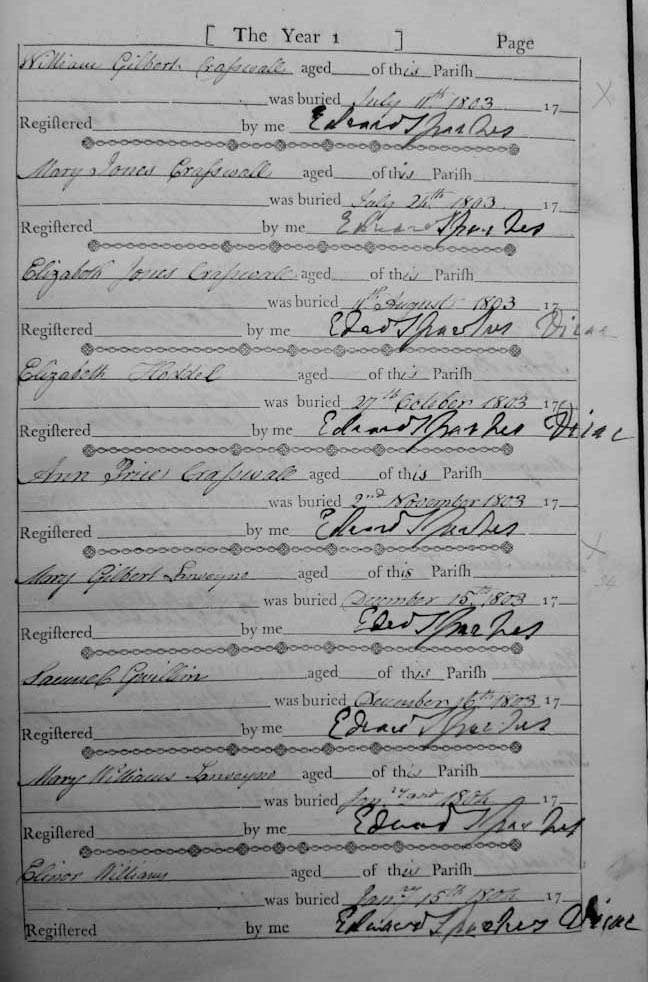 [ The Year 1 ] Page
William Gilbert Craſswall aged of this Pariſh
was buried July 11th 1803 17
Regiſtered by me Edward Sparkes
Mary Jones Craſswall aged of this Pariſh
was buried July 24th 1803 17
Regiſtered by me Edward Sparkes
Elizabeth Jones Craſswall aged of this Pariſh
was buried 11th August 1803 17
Regiſtered by me Edwd Sparkes Vicar
Elizabeth Hoddel aged of this Pariſh
was buried 27th October 1803 17
Regiſtered by me Edward Sparkes Vicar
Ann Price Craſswall aged of this Pariſh
was buried 2nd November 1803 17
Regiſtered by me Edward Sparkes
Mary Gilbert Lanveyno aged of this Pariſh
was buried December 15th 1803 17
34
Regiſtered by me Edwd Sparkes
Samuel Gwillim aged of this Pariſh
was buried December 16th 1803 17
Regiſtered by me Edward Sparkes
Mary Williams Lanveyno aged of this Pariſh
was buried Jany 1804 17
Regiſtered by me Edward Sparkes
Elinor Williams aged of this Pariſh
was buried Jany 15th 1804 17
Regiſtered by me Edward Sparkes Vicar